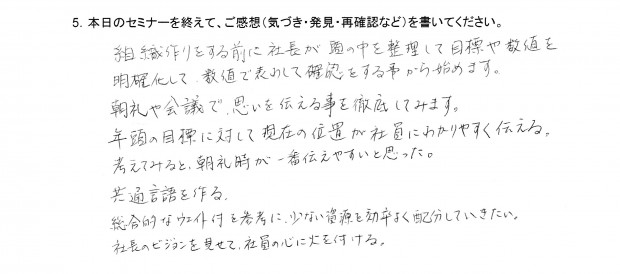 5. 本日のセミナーを終えて、ご感想(気づき・発見・再確認など)を書いてください。
組織作りをする前に社長が頭の中を整理して目標や数値を
明確化して、数値で表わして確認をする事から始めます。
朝礼や会議で、思いを伝える事を徹底してみます。
年頭の目標に対して現在の位置が社員にわかりやすく伝える。
考えてみると、朝礼時が一番伝えやすいと思った。
共通言語を作る。
総合的なウェイト付を参考に、少ない資源を効率よく配分していきたい。
社長のビジョンを見せて、社員の心に火を付ける。